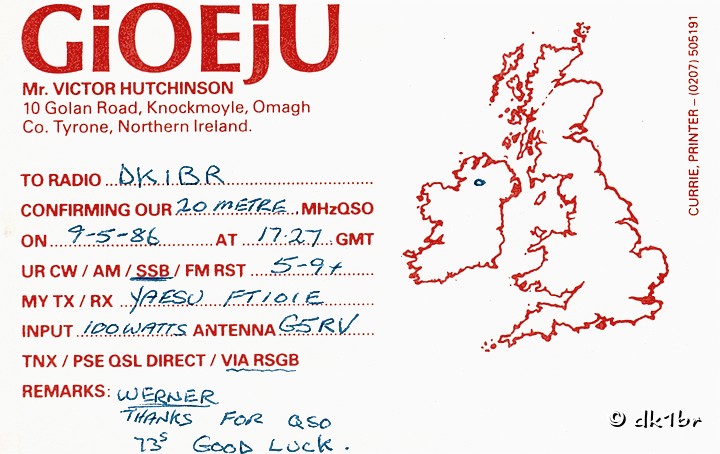 GiOEjU
Mr. VICTOR HUTCHINSON
10 Golan Road, Knockmoyle, Omagh
Co. Tyrone, Northern Ireland.
TO RADIO DK1BR
CONFIRMING OUR 20 METRE MHz QSO
ON 9-5-86 AT 17.27 GMT
UR CW / AM / SSB / FM RST 5-9+
MY TX / RX YAESU FT101E
INPUT 100 WATTS ANTENNA G5RV
TNX / PSE QSL DIRECT / VIA RSGB
REMARKS: WERNER
THANKS FOR QSO
73s GOOD LUCK.
CURRIE, PRINTER – (0207) 505191
© dk1br